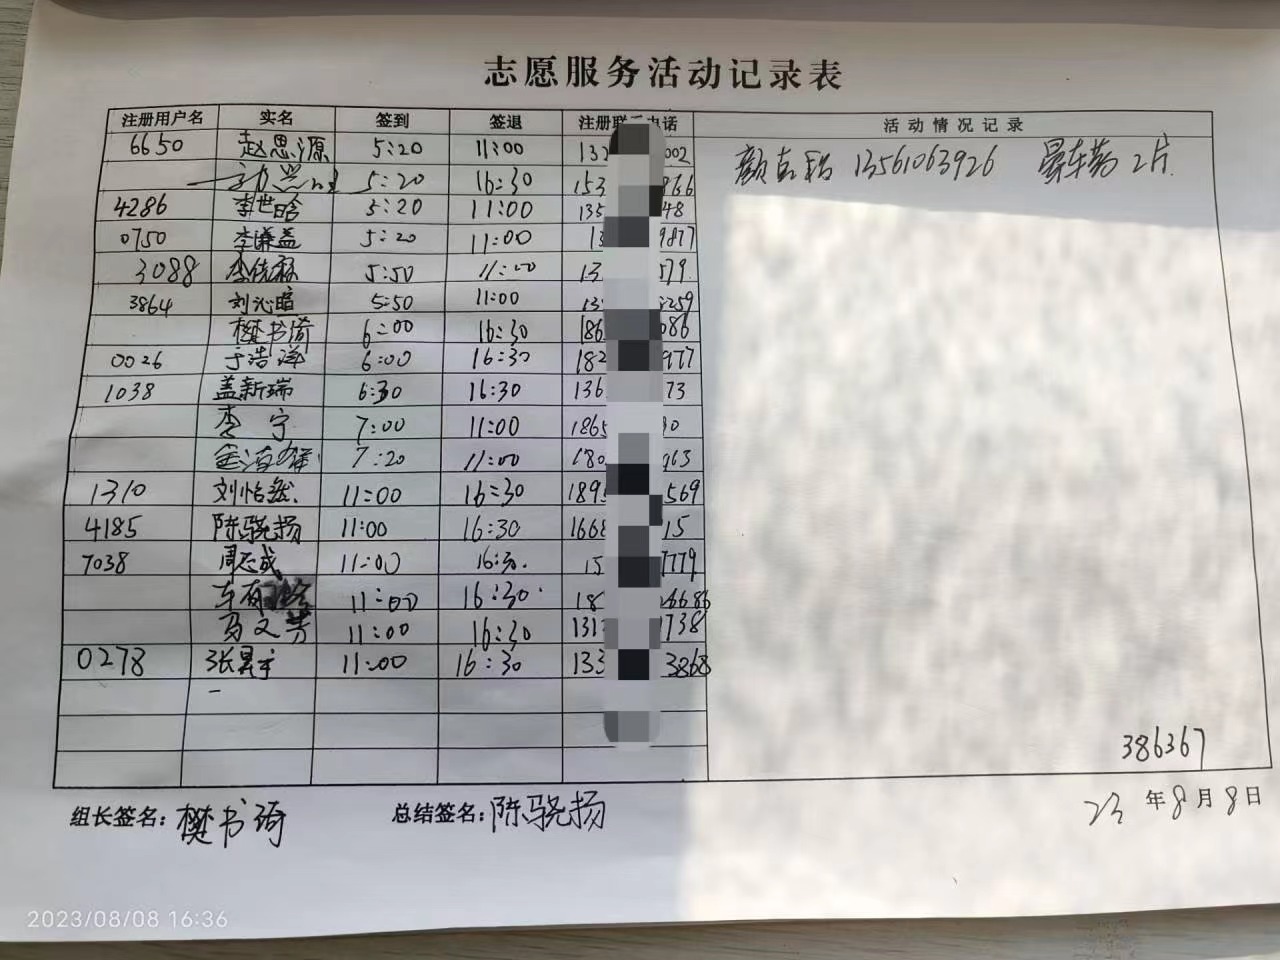 志愿服务活动记录表
注册用户名 实名 签到 签退 注册联系电话 活动情况记录
6650 赵思源 5:20 11:00 132 002 颜 13561063926 晕车药 2片.
5:20 16:30 153 866
4286 李世晗 5:20 11:00 135 48
0750 李谦益 5:20 11:00 13 9877
3088 李 5:50 11:00 13 579
3864 刘沁暄 5:50 11:00 13 3259
樊书漪 6:00 16:30 186 086
0026 于浩洋 6:00 16:30 182 977
1038 盖新瑞 6:30 16:30 136 73
李宁 7:00 11:00 1865 30
7:20 11:00 180 963
1310 刘怡然 11:00 16:30 1895 569
4185 陈骁扬 11:00 16:30 1668 15
7038 周志成 11:00 16:30. 15 7779
车 11:00 16:30 18 6686
马文芳 11:00 16:30 131 738
0278 张昊宇 11:00 16:30 133 3868
386367
组长签名: 樊书漪 总结签名: 陈骁扬 23 年 8 月 8 日
2023/08/08 16:36